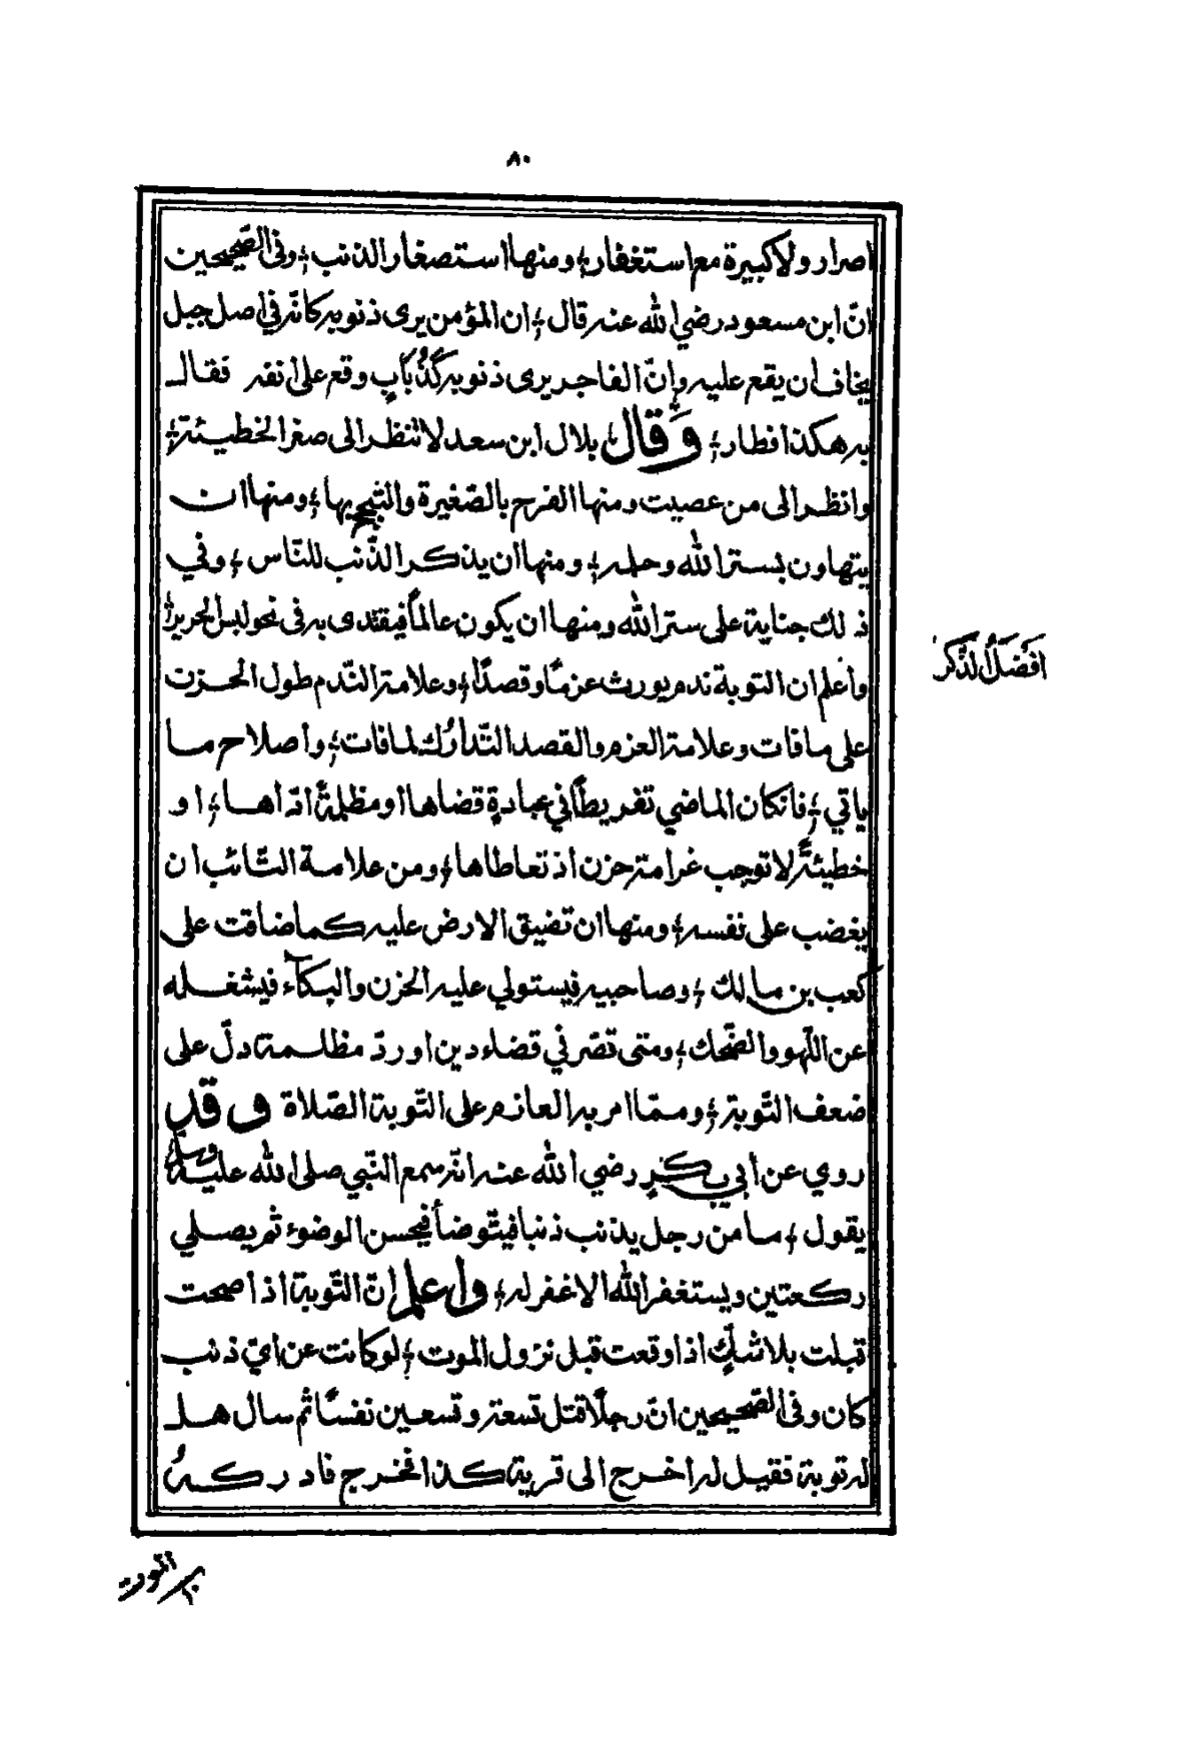 ٨٠
اصرار ولا كبيرة مع استغفار؛ ومنها استصغار الذنب؛ وفي الصّحيحين
انّ ابن مسعود رضي الله عنه قال؛ ان المؤمن يرى ذنوبه كانّه في اصل جبل
يخاف ان يقع عليه وإنّ الفاجر يرى ذنوبه كذُبابٍ وقع على انفه فقال
به هكذا فطار؛ وَقال بلال ابن سعد لا تنظر الى صغر الخطيئة؛
وانظر الى من عصيت ومنها الفرح بالصّغيرة والتبجح بها؛ ومنها ان
يتهاون بستر الله وحلمه؛ ومنها ان يذكر الذّنب للنّاس؛ وفي
ذلك جناية على ستر الله ومنها ان يكون عالماً فيقتدى به في نحو لبس الحرير؛
وأعلم ان التوبة ندم يورث عزمًا وقصدًا؛ وعلامة النّدم طول الحزن
على ما فات وعلامة العزم والقصد التّدارُك لما فات؛ وأصلاح ما
ياتي؛ فان كان الماضي تفريطاً في عبادةٍ قضاها او مظلمةً ادّاها؛ او
خطيئةً لا توجب غرامة حزن اذ تعاطاها؛ ومن علامة التّائب ان
يغضب على نفسه؛ ومنها ان تضيق الارض عليه كما ضاقت على
كعب بن مالك؛ وصاحبيه فيستولي عليه الخزن والبكآء فيشغله
عن اللّهو والضّحك؛ ومتى قصّر في قضاء دين او ردّ مظلمة دلّ على
ضعف التّوبة؛ وممّا امر به العازم على التّوبة الصّلاة وقد
روي عن أبي بكرٍ رضي الله عنه انّه سمع النّبي صلى الله عليه وسلم
يقول؛ ما من رجل يذنب ذنبا فيتّوضأ فيحسن الوضوء ثم يصلي
ركعتين ويستغفر الله الا غفر له؛ واعلم إنّ التّوبة اذا صحت
قبلت بلا شكٍّ اذا وقعت قبل نزول الموت؛ لو كانت عن ايّ ذنب
كان وفي الصّحيحين انّ رجلًا قتل تسعة وتسعين نفسًا ثم سال هل
له توبة فقيل له اخرج الى قرية كذا فخرج فادركهُ
افَضَلُ الذَّكَر